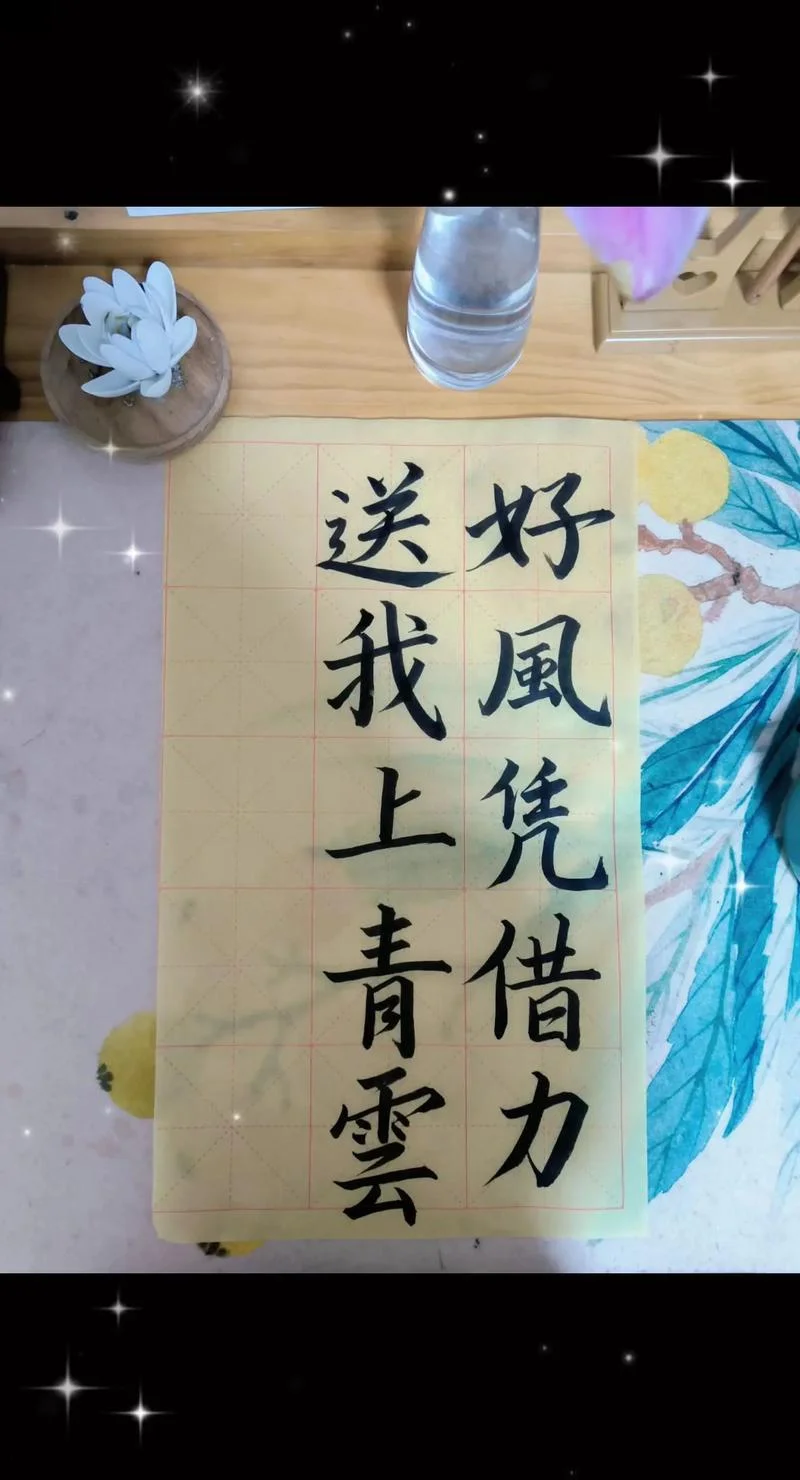 好風凭借力
送我上青雲